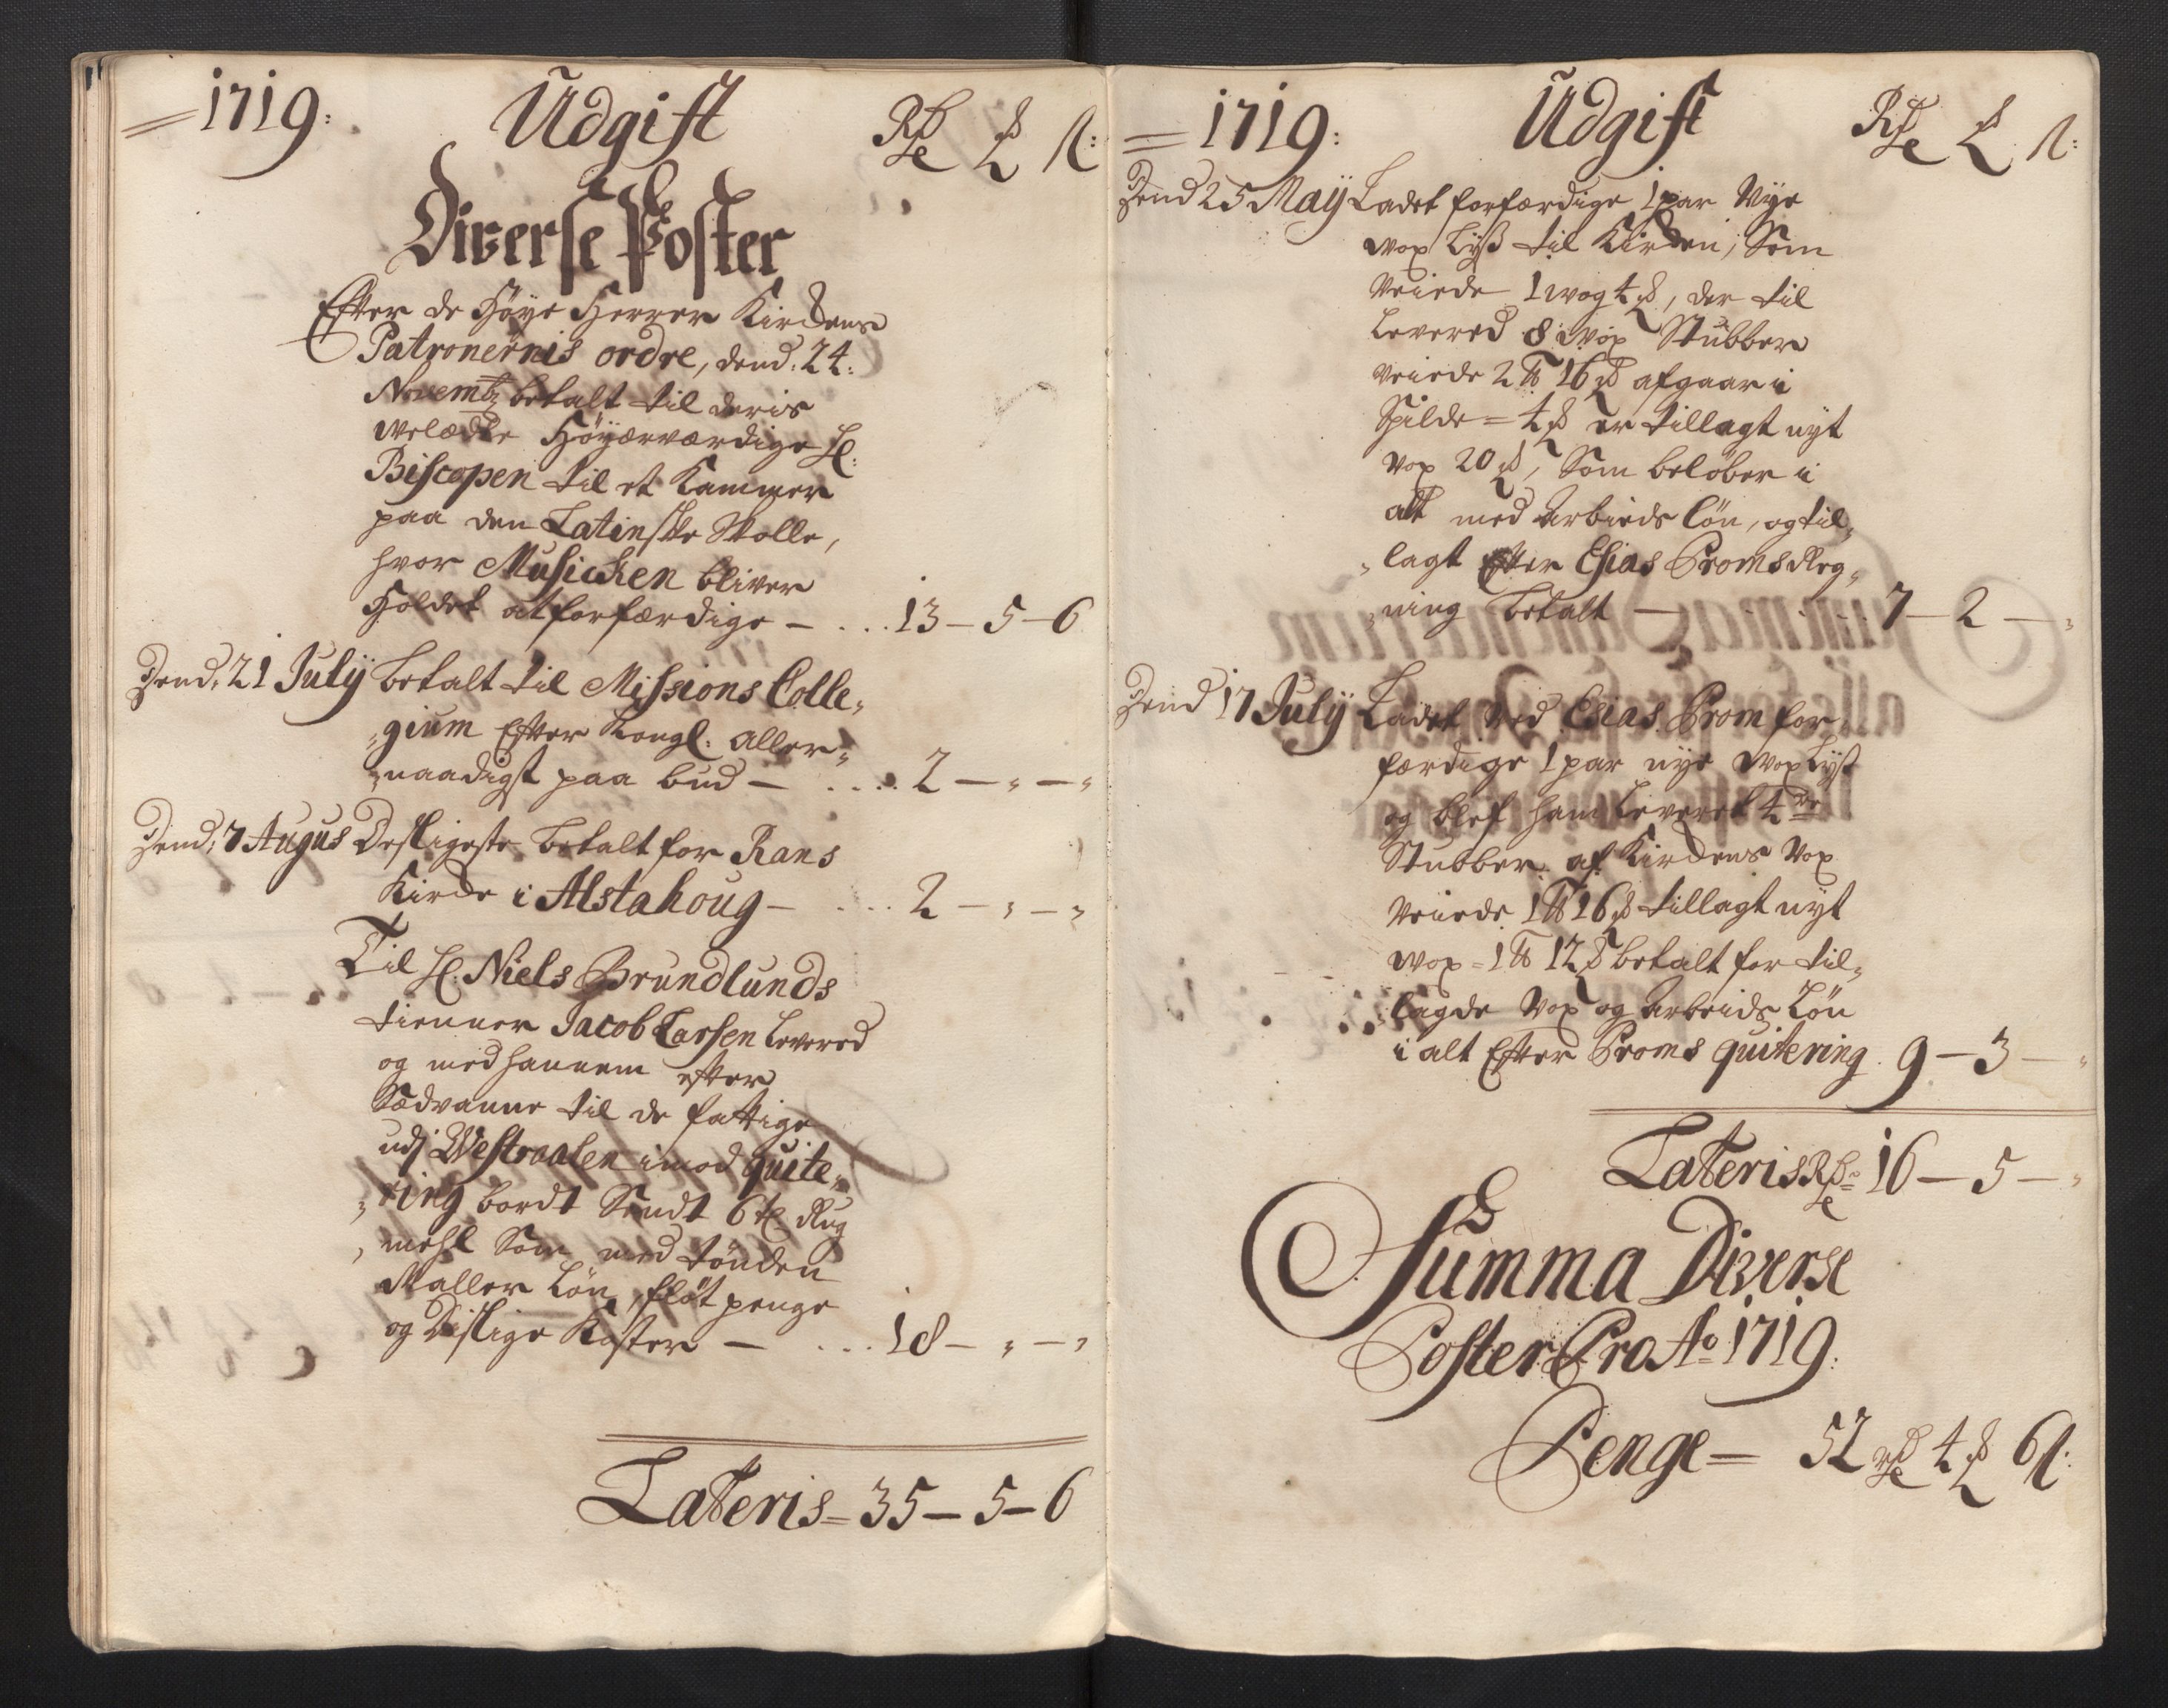 1719: Udgift Rdr ℔ ß:
Diverse Poster
Efter de Høye Herrer Kirchens
Patronernis ordre, dend: 24:
Novembr betalt til deris
Welædle Høyærværdige H:
Biscopen til et Kammer
paa den Latinske Skolle,
hvor Musichen bliver
Holdet at forfærdige — . . . 13 — 5 — 6
Dend: 21 July betalt til Missions Colle„
„gium Efter Kongl: aller„
„naadigst paa bud — . . . . 2 — „ — „
Dend: 7 Augus Desligeste betalt for Rans
Kirche i Alstahoug — . . . . 2 — „ — „
Til H. Niels Brundlunds
tienner Jacob Larsen Levered
og med hannem efter
Sædvanne til de fattige
udj Westraalen imod quite„
„ring bordt Sendt 6 tr Rug
„mehl Som med tönden
Maller Lön, fløt penge
og Dislige Koster — . . . 18 — „ — „
Lateris = 35 — 5 — 6
1719: Udgift Rdr ℔ ß:
Dend 25 Maÿ Ladet forfærdige 1 par Nye
wox Lyß til Kirchen, Som
veiede 1 wog 4 ℔, der til
Levered 8 wox Stubber
veiede 2 16 afgaar i
Spilde = 4 er tillagt nyt
vox 20, Som beløber i
alt med Arbieds løn, og til„
„lagt Efter Esias Proms Reg„
„ning betalt — . . . . 7 — 2 — „
Dend 17 July Ladet Ved Esias Prom for„
færdige 1 par nye wox Lyß
og blef ham Leveret 4de
Stubber af Kirchens Vox
veiede 1 16 tillagt nyt
wox = 1 12 betalt for til„
„lagde Vox og Arbeids Lön
i alt Efter Proms quitering. 9 — 3 — „
Lateris Rdr = 16 — 5 — „
Summa Diverse
Poster Pro Ao 1719:
Penge — 52 rdr 4 ℔ 6 ß: